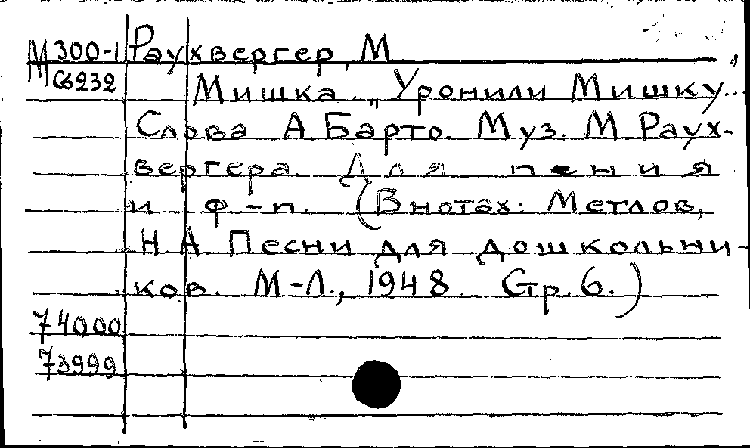 М 300-1 Раухвергер, М
С6232 Мишка. „Уронили Мишку...“
Слова А Барто. Муз. М Раух-
вергера. Для пения
и ф.-п. (В нотах: Метлов,
Н А Песни для дошкольни-
ков. М-Л., 1948. Стр. 6.)
74000
73999